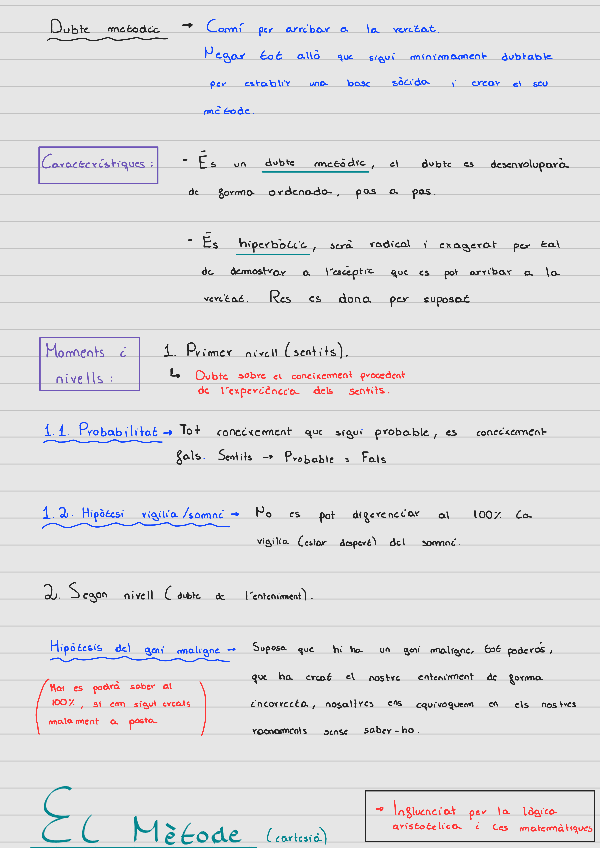 Dubte metòdic → Camí per arribar a la veritat.
Negar tot allò que sigui mínimament dubtable
per establir una base sòlida i crear el seu
mètode.
Característiques:
- És un dubte metòdic, el dubte es desenvoluparà
de forma ordenada, pas a pas.
- És hiperbòlic, serà radical i exagerat per tal
de demostrar a l'escèptic que es pot arribar a la
veritat. Res es dona per suposat
Moments i
nivells:
1. Primer nivell (sentits).
↳ Dubte sobre el coneixement procedent
de l'experiència dels sentits.
1.1. Probabilitat → Tot coneixement que sigui probable, es coneixement
fals. Sentits → Probable = Fals
1.2. Hipòtesi vigília/somni → No es pot diferenciar al 100% la
vigília (estar despert) del somni.
2. Segon nivell (dubte de l'enteniment).
Hipòtesis del geni maligne → Suposa que hi ha un geni maligne, tot poderós,
que ha creat el nostre enteniment de forma
incorrecta, nosaltres ens equivoquem en els nostres
raonaments sense saber-ho.
(Mai es podrà saber al
100%, si em sigut creats
malament a posta)
El Mètode (cartesià)
→ Influenciat per la lògica
aristotèlica i les matemàtiques